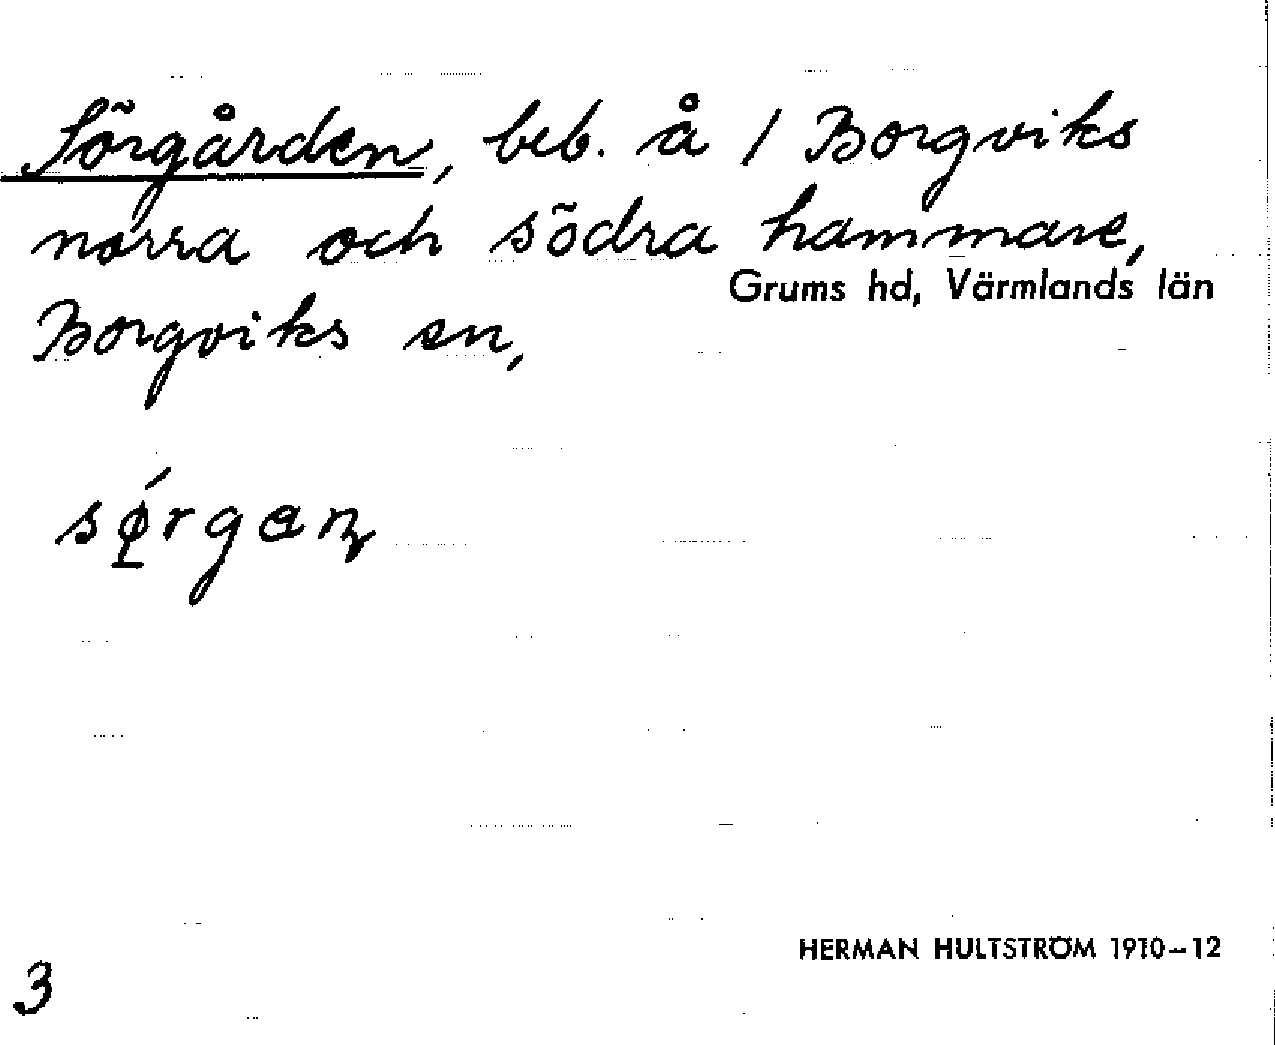 Sörgården, beb. å / Borgviks
norra och södra hammare,
Grums hd, Värmlands län
Borgviks sn,
HERMAN HULTSTRÖM 1910–12
3